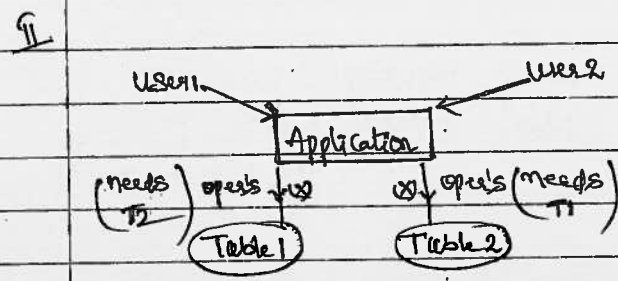 II
User1 User2
Application
(needs T2) oper's (X) (X) oper's (needs T1)
Table1 Table2